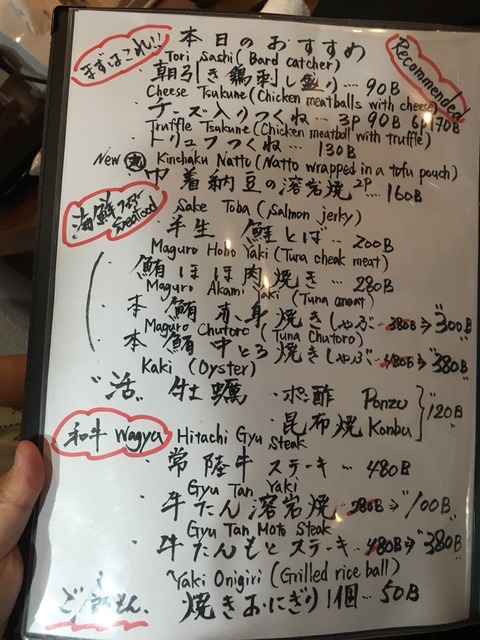 まずはこれ!!
本日のおすすめ
Recommended
Tori Sashi (Bard catcher)
朝引き鶏刺し盛り … 90B
Cheese Tsukune (Chicken meatballs with cheese)
チーズ入りつくね … 3P 90B 6P 170B
Truffle Tsukune (Chicken meatball with truffle)
トリュフつくね … 130B
New Kinchaku Natto (Natto wrapped in a tofu pouch)
巾着納豆の溶岩焼 2P … 160B
海鮮 Seafood
Sake Toba (Salmon jerky)
半生 鮭とば … 200B
Maguro Hoho Yaki (Tuna cheak meat)
鮪ほほ肉焼き … 280B
Maguro Akami Yaki (Tuna
本鮪赤身焼きしゃぶ … 380B ⇒ "300B
Maguro Chutoro (Tuna Chutoro)
本鮪中とろ焼きしゃぶ … 480B ⇒ "380B
Kaki (Oyster)
"活" 牡蠣 ・ポン酢 Ponzu
昆布焼 Konbu } 120B
和牛 Wagyu
Hitachi Gyu Steak
常陸牛 ステーキ … 480B
Gyu Tan Yaki
牛たん溶岩焼 … 280B ⇒ "100B
Gyu Tan Moto Steak
牛たんもとステーキ … 480B ⇒ "380B
Yaki Onigiri (Grilled rice ball)
焼きおにぎり 1個 … 50B